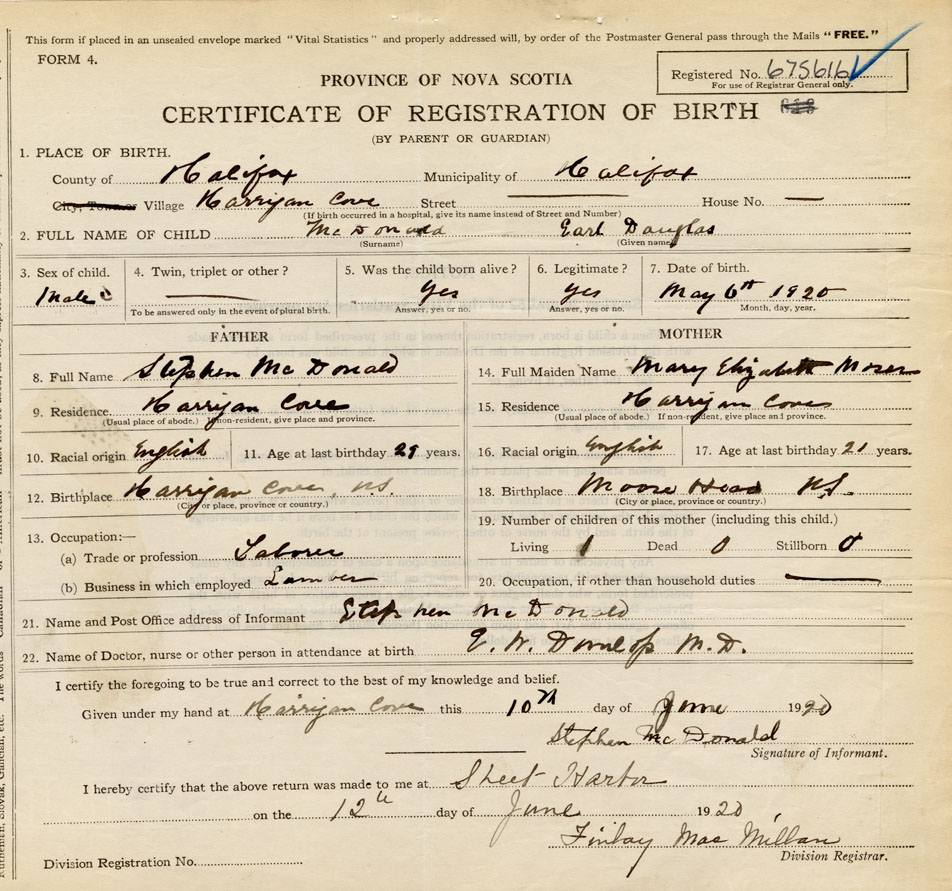 This form if placed in an unsealed envelope marked "Vital Statistics" and properly addressed will, by order of the Postmaster General pass through the Mails "FREE."
FORM 4.
Registered No. 675616
For use of Registrar General only.
PROVINCE OF NOVA SCOTIA
CERTIFICATE OF REGISTRATION OF BIRTH
(BY PARENT OR GUARDIAN)
1. PLACE OF BIRTH.
County of Halifax Municipality of Halifax
City, Town or Village Harrigan Cove Street House No. —
(If birth occurred in a hospital, give its name instead of Street and Number)
2. FULL NAME OF CHILD McDonald Earl Douglas
(Surname) (Given name)
3. Sex of child. 4. Twin, triplet or other? 5. Was the child born alive? 6. Legitimate? 7. Date of birth.
Male — Yes Yes May 6th 1920
To be answered only in the event of plural birth. Answer, yes or no. Answer, yes or no. Month, day, year.
FATHER MOTHER
8. Full Name Stephen McDonald 14. Full Maiden Name Mary Elizabeth Moser
9. Residence Harrigan Cove 15. Residence Harrigan Cove
(Usual place of abode.) If non-resident, give place and province. (Usual place of abode.) If non-resident, give place and province.
10. Racial origin English 11. Age at last birthday 29 years. 16. Racial origin English 17. Age at last birthday 21 years.
12. Birthplace Harrigan Cove, N.S. 18. Birthplace Moose Head N.S.
(City or place, province or country.) (City or place, province or country.)
13. Occupation:— 19. Number of children of this mother (including this child.)
(a) Trade or profession Laborer Living 1 Dead 0 Stillborn 0
(b) Business in which employed Lumber 20. Occupation, if other than household duties —
21. Name and Post Office address of Informant Stephen McDonald
22. Name of Doctor, nurse or other person in attendance at birth E. W. Dunlop M.D.
I certify the foregoing to be true and correct to the best of my knowledge and belief.
Given under my hand at Harrigan Cove this 10th day of June 1920
Stephen McDonald
Signature of Informant.
I hereby certify that the above return was made to me at Sheet Harbor
on the 12th day of June 1920
Finlay MacMillan
Division Registrar.
Division Registration No.